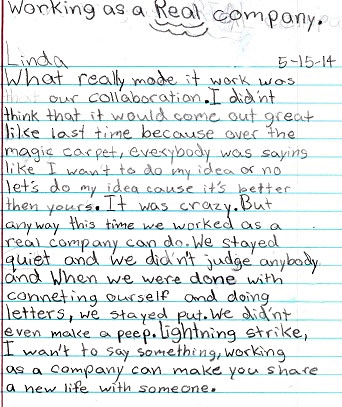 Working as a Real company.
Linda 5-15-14
What really made it work was
our collaboration. I did'nt
think that it would come out great
like last time because over the
magic carpet, everybody was saying
like I wan't to do my idea or no
let's do my idea cause it's better
then yours. It was crazy. But
any way this time we worked as a
real company can do. We stayed
quiet and we did'nt judge anybody
and When we were done with
conneting ourself and doing
letters, we stayed put. We did'nt
even make a peep. Lightning strike,
I wan't to say something, working
as a company can make you share
a new life with someone.